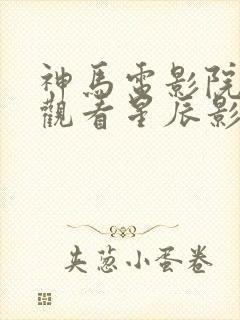 神馬雷影院
觀看星辰影
夹葱小蛋卷